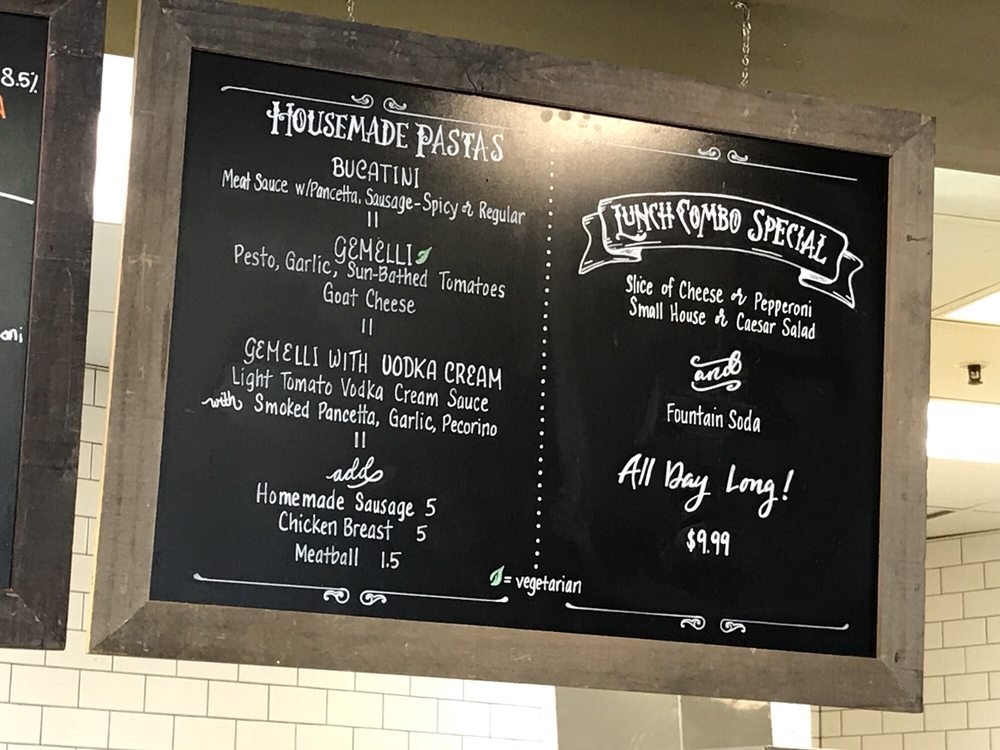 8.5%
A
oni
HOUSEMADE PASTAS
BUCATINI
Meat Sauce w/Pancetta, Sausage-Spicy or Regular
11
GEMELLI
Pesto, Garlic, Sun-Bathed Tomatoes
Goat Cheese
11
GEMELLI WITH VODKA CREAM
Light Tomato Vodka Cream Sauce
with Smoked Pancetta, Garlic, Pecorino
11
add
Homemade Sausage 5
Chicken Breast 5
Meatball 1.5
= vegetarian
LUNCH COMBO SPECIAL
Slice of Cheese or Pepperoni
Small House or Caesar Salad
and
Fountain Soda
All Day Long!
$9.99